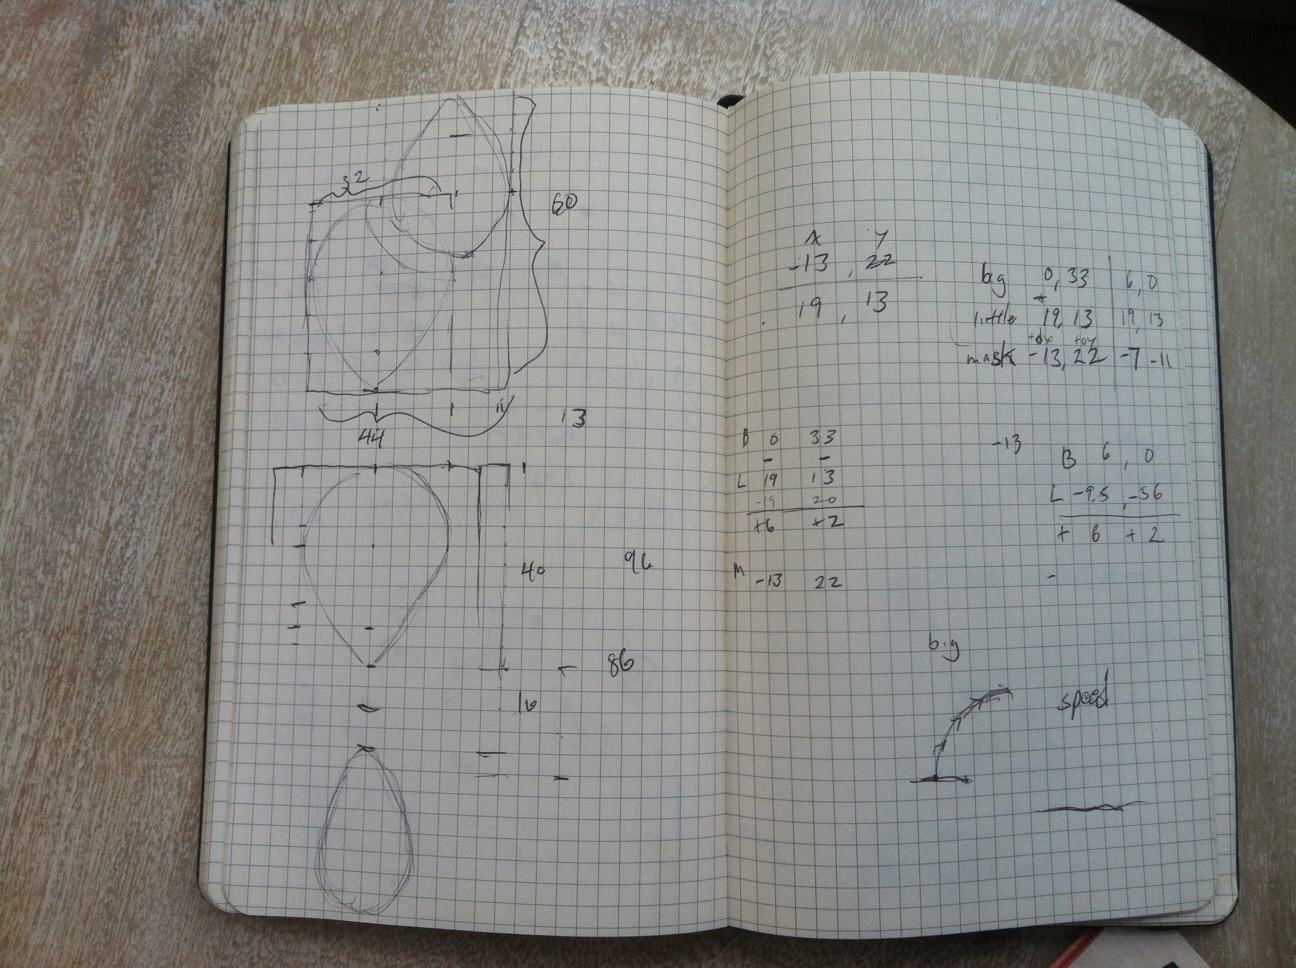 32
60
44
13
40
96
86
16
X Y
-13, 22
19, 13
big 0, 33 | 6, 0
little 19, 13 | 19, 13
+dx +dy
mask -13, 22 | -7 -11
B 0 33
- -
L 19 13
-19 20
+6 +2
M -13 22
-13
B 6, 0
L -9.5, -56
+ 6 + 2
-
big
speed